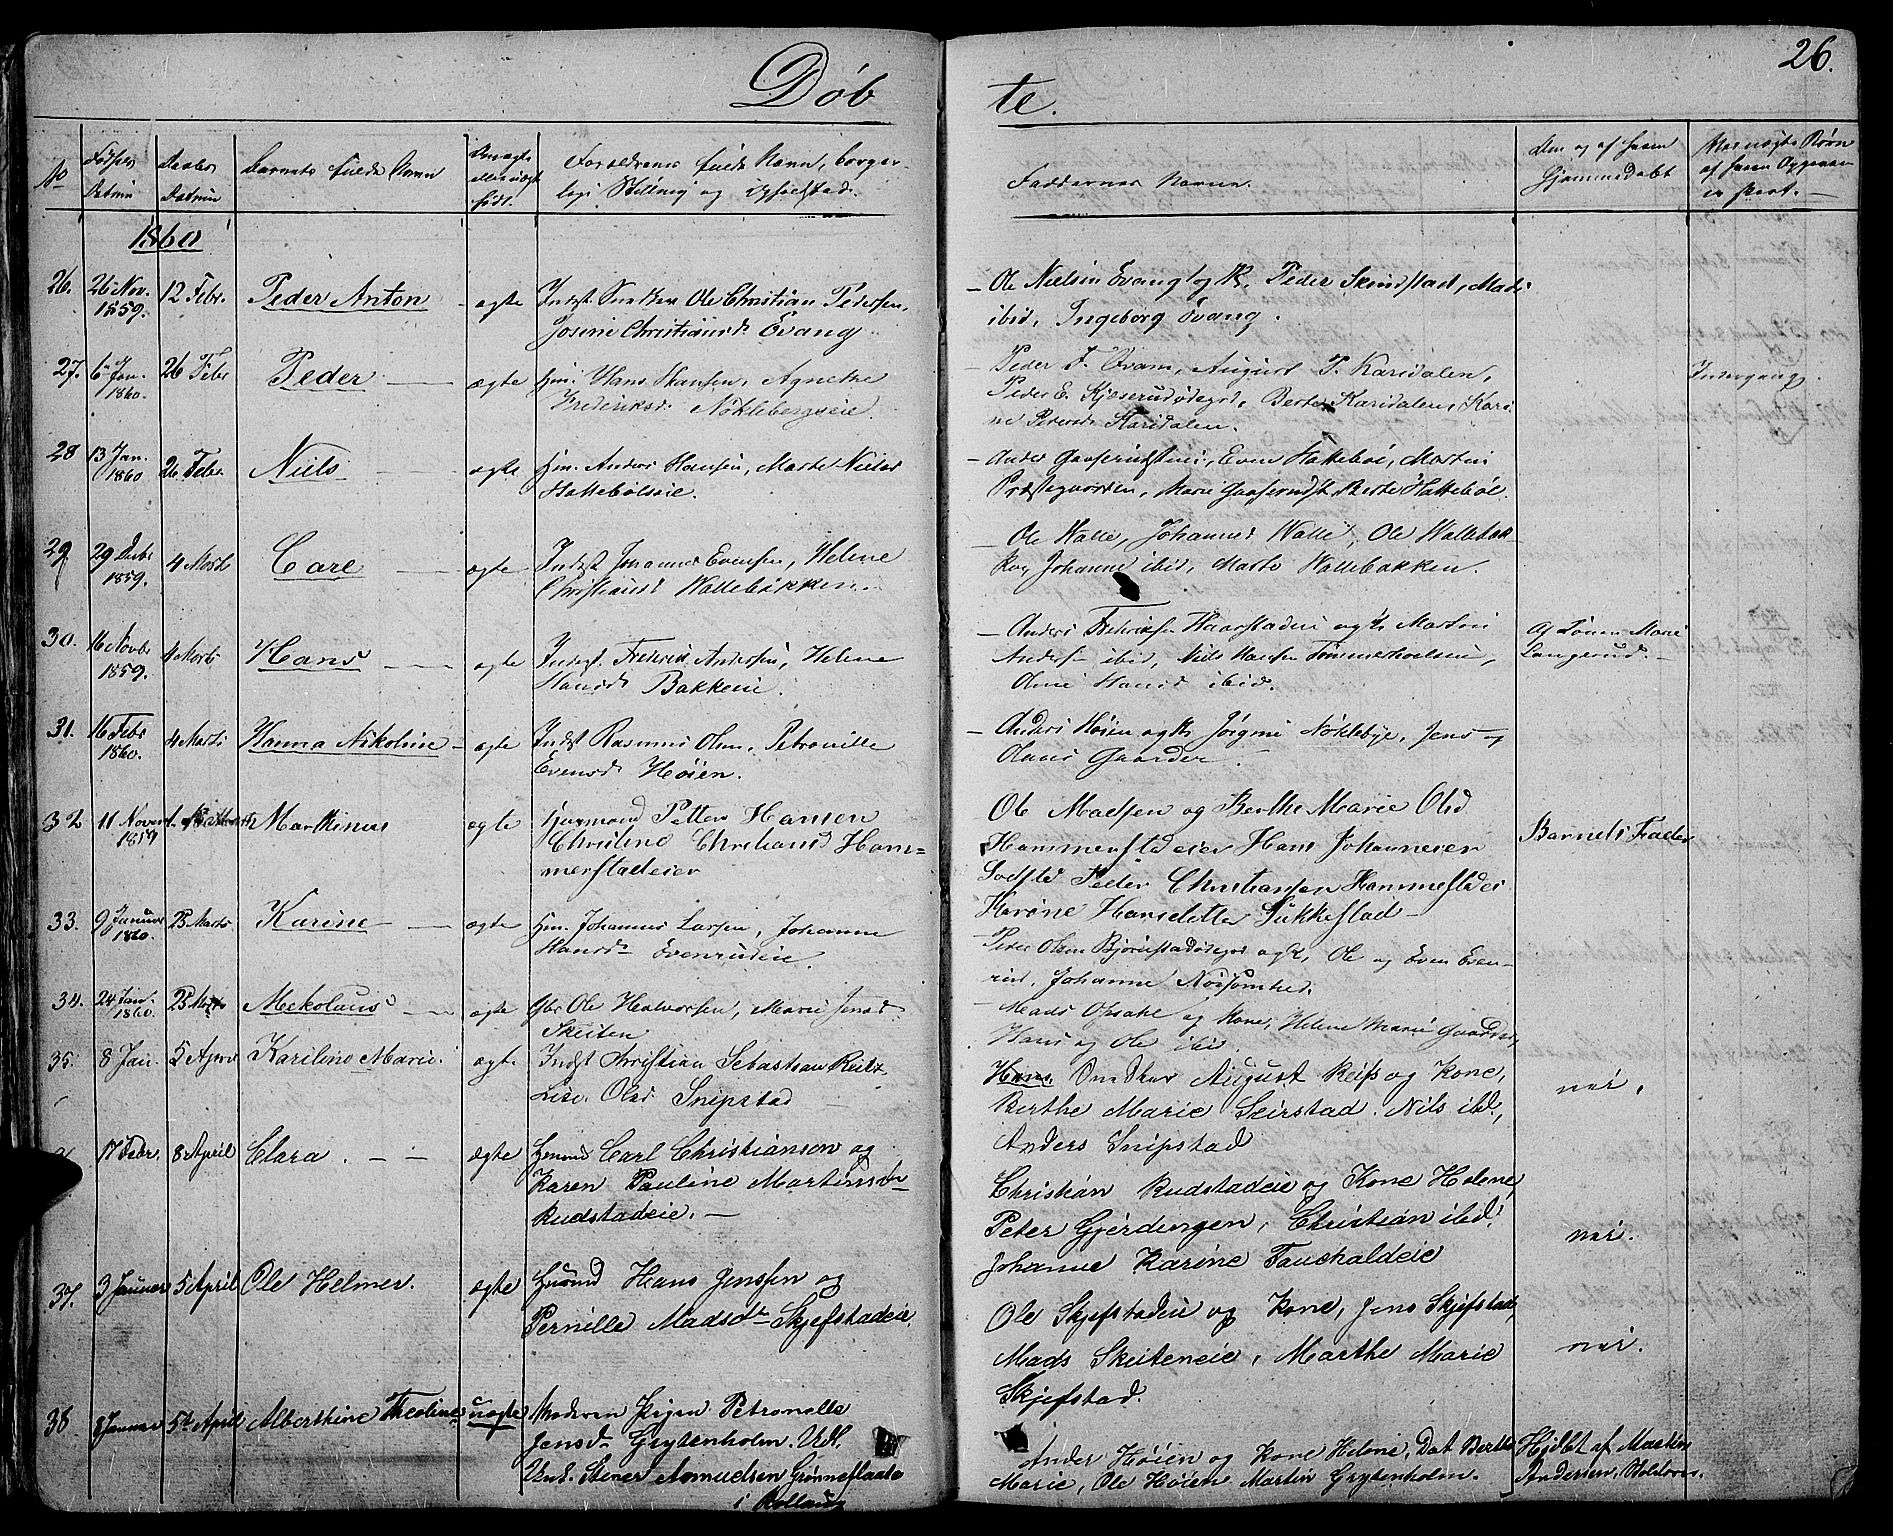 Døb
te.
26.
No
Fødsels
Datum
Daabs
Datum
Barnets fulde Navn
ægte
eller uægte
født.
Forældrenes fulde Navn, borger-
lige Stilling og Opholdsted.
Faddernes Navne.
Om og af hvem
Hjemmedøbt
1860
26.
26 Nov.
1859.
12 Febr.
Peder Anton
ægte
Indst Snedker Ole Christian Pedersen,
Josine Christiansd Evang.
Ole Nielsen Evang og K. Peder Skindstad, Mads
ibid, Ingeborg Evang.
27.
6 Jan.
1860.
26 Febr
Peder
ægte
Hm. Hans Hansen, Agnethe
Frederiksd Nøklebergseie.
Peder F. Evam, August P. Karidalen,
Peder E. Kjøserudødegrd, Berte Karidalen, Kari-
ne Petersd Karidalen.
28
13 Jan.
1860
26 Febr
Niels
ægte
Hm. Anders Hansen, Marte Nielsd
Hattebølseie.
Præstegaarden, Marie
Berte Hattebøl.
29
1859.
4 Marts
Carl
ægte
Indst Johannes Evensen, Helene
Christiansd Wallebakken.
Ole Walle, Johannes Walle, Ole Wallebak-
ken, Johanne ibid, Marte Wallebakken.
30.
16 Novbr
1859.
4 Marts
Hans
ægte
Indst. Frederik Andersen, Helene
Hansd Bakkeeie.
Anders Fredriksen Haarstadeie og K. Martin
Anders ibid, Niels Hansen
Oline Hansd ibid.
Af Lovise Marie
Langerud.
31.
16 Febr
1860.
4 Marts
Hanna Nikoline
ægte
Indst Rasmus Olsen, Petronille
Evensd Høien.
Anders Høien og K. Jørgine Nøklebye, Jens og
Olaus Gaarder.
32
11 Nover
1859
Martinus
ægte
Huusmand Petter Hansen
Christine Christiansd Ham=
merstadeier
Ole Madsen og Berthe Marie Olsd
Hammerstdeier Hans Johanneser
Peder Christiansen Hammerstdeier
Karine Hansdetter Sukkestad
Barnets Fader
33.
9 Januar
1860.
25 Marts
Karine
ægte
Hm. Johannes Larsen, Johanne
Hansd Evenrudeie.
Peder Olsen Bjørnstadødegrd og K, Ole og Even Even-
rud, Johanne Nøisomhed.
34.
24 Jan.
1860.
25 Marts
Nickolaus
ægte
Gbr Ole Halvorsen, Marie Jensd
Skeiten
Mads Opsahl og Kone, Helene Marie Gaarder,
Hans og Ole ibid.
35.
8 Jan.
5 April
Kariline Marie
ægte
Indst Christian Sebastian Reitz
Lise Olsd Snipstad
Hans Snedker August Reiss og Kone,
Berthe Marie Seirstad. Nils ibd.,
Anders Snipstad
nei.
17 Febr.
8 April
Clara.
ægte
Hmand Carl Christianson og
Karen Pauline Martinsdn
Rudstadeie.
Christian Rudstadeie og Kone Helene,
Peter Gjerdingen, Christian ibid,
Johanne Karine Fauchaldeie
nei.
37.
3 Januar
5 April
Ole Helmer.
ægte
Husmd Hans Jenssen og
Pernille Madsdtr Skjefstadeie.
Ole Skjefstadeie og Kone, Jens Skjefstad,
Mads Skeiteneie, Marthe Marie
Skjefstad.
nei.
38
8 Januar
5te April
Albertine Theoline
uægte
Moderen Pigen Petronelle
Jensd Grytenholm. Udl.
Unk. Stener Asmudsen Grønneflaata
i Rollaug
Ander Høien og Kone Helene, Dat Berthe
Marie, Ole Høien, Martin Grytenholm.
Hjdbt af Martin